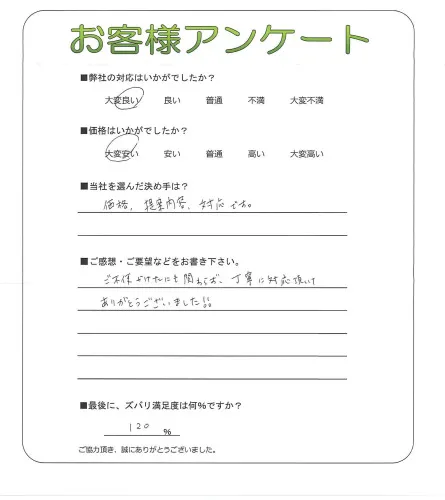 お客様アンケート
■弊社の対応はいかがでしたか？
大変良い 良い 普通 不満 大変不満
■価格はいかがでしたか？
大変安い 安い 普通 高い 大変高い
■当社を選んだ決め手は？
価格、提案内容、対応です。
■ご感想・ご要望などをお書き下さい。
にも関わらず、丁寧に対応頂い
ありがとうございました!!
■最後に、ズバリ満足度は何%ですか？
120 %
ご協力頂き、誠にありがとうございました。